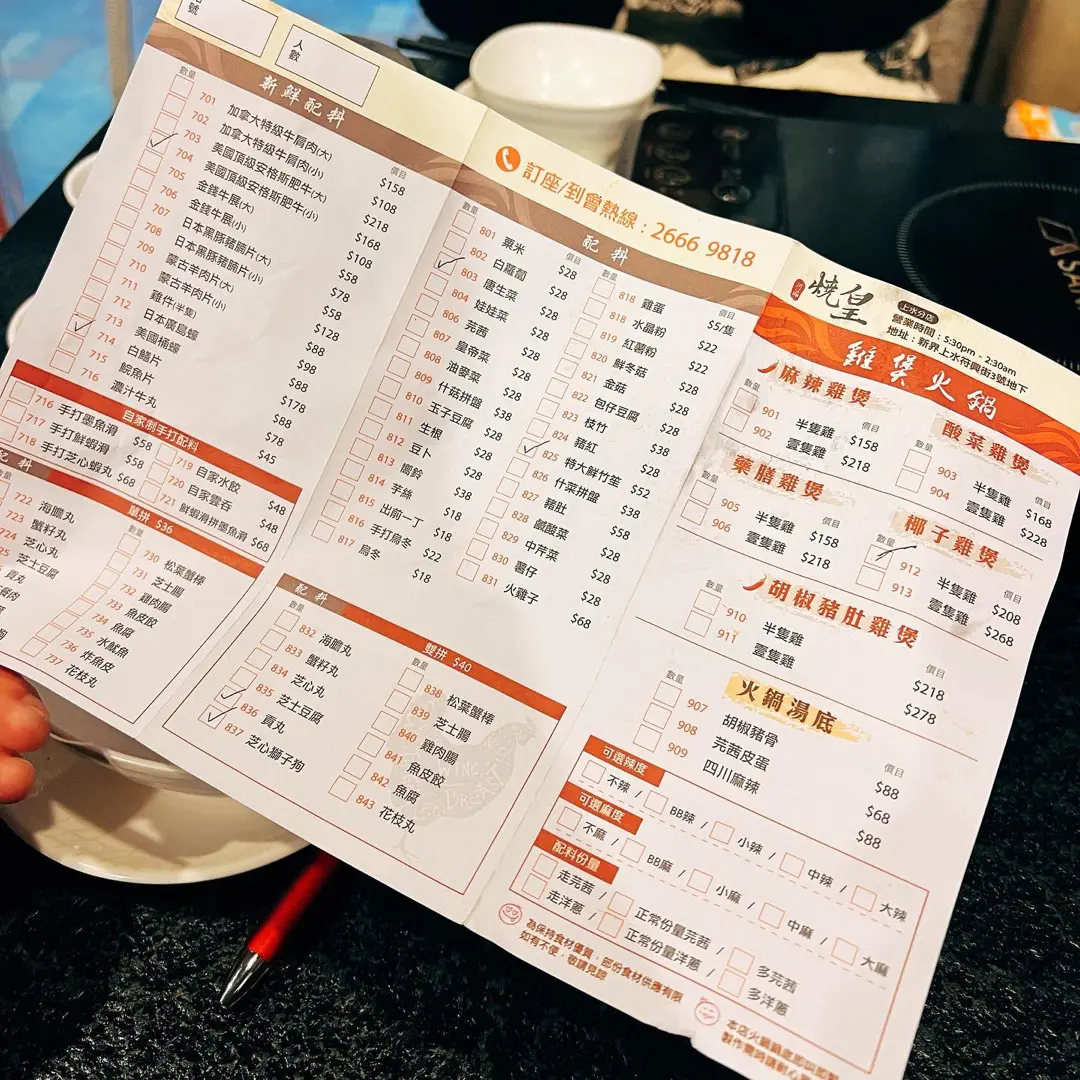 號
人數
新鮮配料
數量 價目
701 加拿大特級牛肩肉(大) $158
702 加拿大特級牛肩肉(小) $108
703 美國頂級安格斯肥牛(大) $218
704 美國頂級安格斯肥牛(小) $168
705 金錢牛展(大) $108
706 金錢牛展(小) $58
707 日本黑豚豬腩片(大) $78
708 日本黑豚豬腩片(小) $58
709 蒙古羊肉片(大) $128
710 蒙古羊肉片(小) $88
711 雞件(半隻) $98
712 日本廣島蠔 $88
713 美國桶蠔 $178
714 白鱔片 $88
715 鯇魚片 $78
716 濃汁牛丸 $45
自家制手打配料
716 手打墨魚滑 $58
717 手打鮮蝦滑 $58
718 手打芝心蝦丸 $68
719 自家水餃 $48
720 自家雲吞 $48
721 鮮蝦滑拼墨魚滑 $68
配料 單拼 $36
數量
722 海膽丸
723 蟹籽丸
724 芝心丸
芝士豆腐
貢丸
數量
730 松葉蟹棒
731 芝士腸
732 雞肉腸
733 魚皮餃
734 魚腐
735 水魷魚
736 炸魚皮
737 花枝丸
訂座/到會熱線 : 2666 9818
配料
數量 價目
801 粟米 $28
802 白蘿蔔 $28
803 唐生菜 $28
804 娃娃菜 $28
806 芫茜 $28
807 皇帝菜 $28
808 油麥菜 $28
809 什菇拼盤 $38
810 玉子豆腐 $28
811 生根 $28
812 豆卜 $28
813 響鈴 $38
814 芋絲 $18
815 出前一丁 $18
816 手打烏冬 $22
817 烏冬 $18
數量 價目
818 雞蛋 $5/隻
818 水晶粉 $22
819 紅薯粉 $22
820 鮮冬菇 $28
821 金菇 $28
822 包仔豆腐 $28
823 枝竹 $28
824 豬紅 $38
825 特大鮮竹笙 $52
826 什菜拼盤 $38
827 豬肚 $58
828 鹹酸菜 $28
829 中芹菜 $28
830 薯仔 $28
831 火雞子 $68
配料 雙拼 $40
數量
832 海膽丸
833 蟹籽丸
834 芝心丸
835 芝士豆腐
836 貢丸
837 芝心獅子狗
數量
838 松葉蟹棒
839 芝士腸
840 雞肉腸
841 魚皮餃
842 魚腐
843 花枝丸
燒皇
上水分店
營業時間 : 5:30pm - 2:30am
地址 : 新界上水符興街3號地下
雞煲火鍋
麻辣雞煲
數量 價目
901 半隻雞 $158
902 壹隻雞 $218
酸菜雞煲
數量 價目
903 半隻雞 $168
904 壹隻雞 $228
藥膳雞煲
數量 價目
905 半隻雞 $158
906 壹隻雞 $218
椰子雞煲
數量 價目
912 半隻雞 $208
913 壹隻雞 $268
胡椒豬肚雞煲
數量 價目
910 半隻雞 $218
911 壹隻雞 $278
火鍋湯底
數量 價目
907 胡椒豬骨 $88
908 芫茜皮蛋 $68
909 四川麻辣 $88
可選辣度
不辣 / BB辣 / 小辣 / 中辣 / 大辣
可選麻度
不麻 / BB麻 / 小麻 / 中麻 / 大麻
配料份量
走芫茜 / 正常份量芫茜 / 多芫茜
走洋蔥 / 正常份量洋蔥 / 多洋蔥
為保持食材優質，部份食材供應有限
如有不便，敬請見諒
本店火鍋鍋底